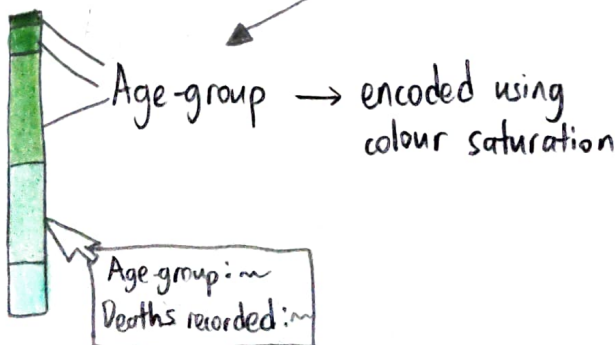 Age-group → encoded using
colour saturation
Age-group: ~
Deaths recorded: ~